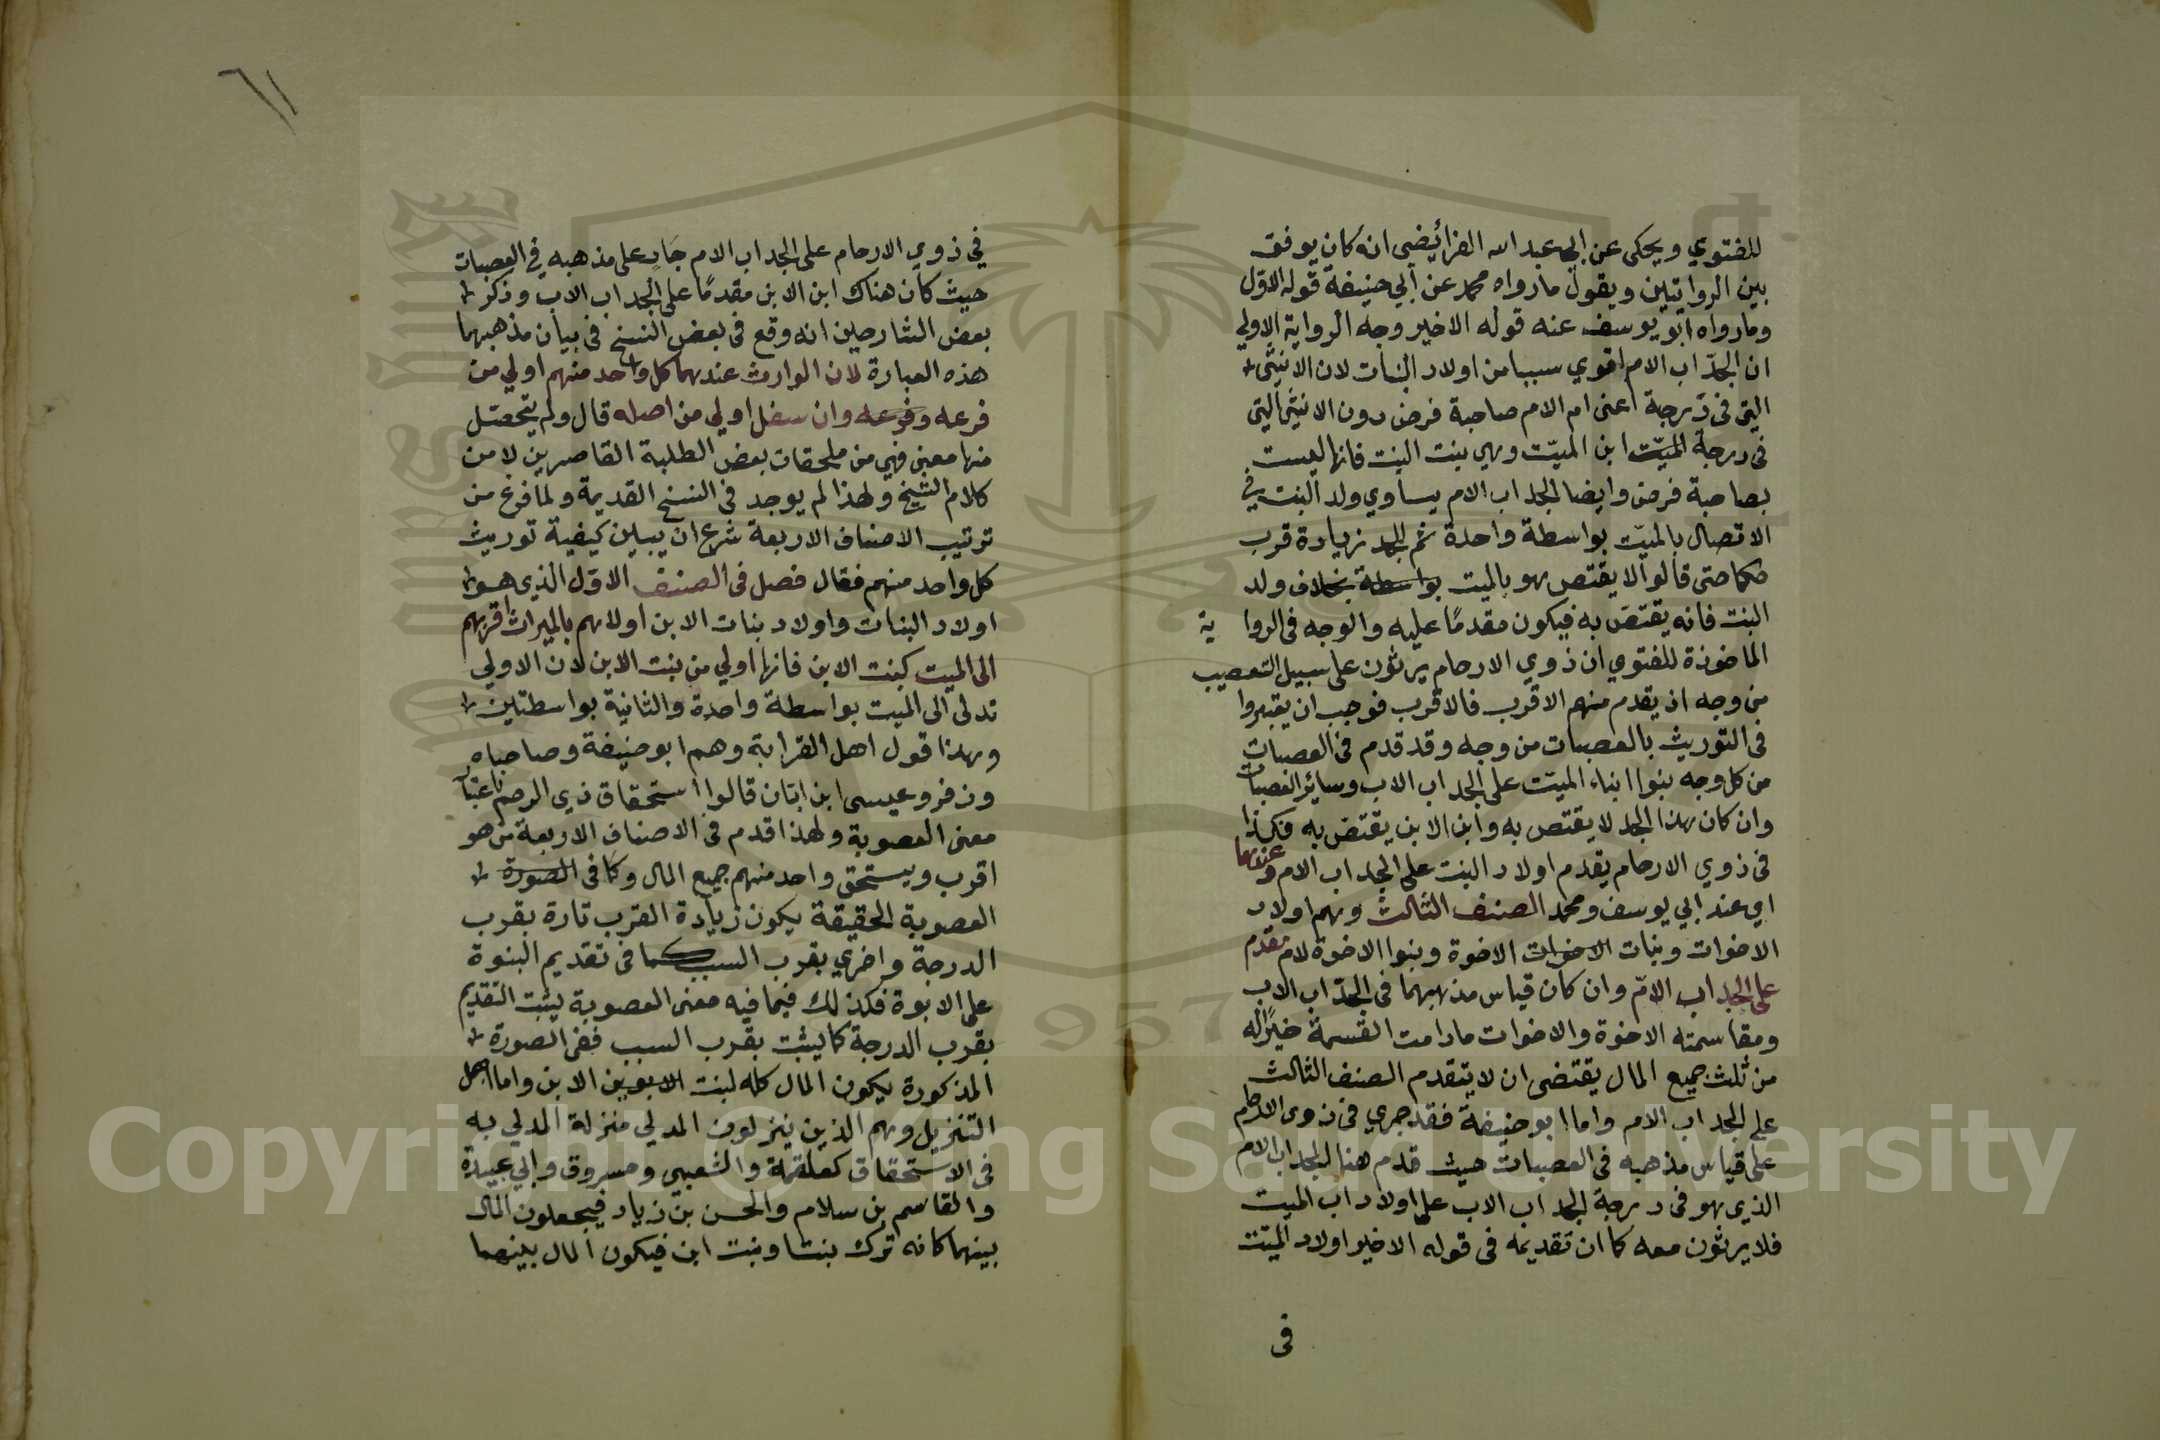 للفتوي ويحكى عن ابي عبد الله الفرائيضي انه كان يوفق
بين الروايتين ويقول ما رواه محمد عن أبي حنيفة قوله الاول
وما رواه ابو يوسف عنه قوله الاخير وجه الرواية الاولي
ان الجد اب الام اقوي سببا من اولاد البنات لان الانثى
التي في درجة اعنى ام الام صاحبة فرض دون الانثى التي
في درجة الميت ابن الميت وهي بنت البنت فانها ليست
بصاحبة فرض وايضا الجد اب الام يساوي ولد البنت في
الاتصال بالميت بواسطة واحدة ثم للجد زيادة قرب
حكما حتى قالوا لا يقتص هو بالميت بواسطة بخلاف ولد
البنت فانه يقتص به فيكون مقدمًا عليه والوجه في الرواية
الماخوذة للفتوي ان ذوي الارحام يرثون على سبيل التعصيب
من وجه اذ يقدم منهم الاقرب فالاقرب فوجب ان يعتبروا
في التوريث بالعصبات من وجه وقد قدم في العصبات
من كل وجه بنوا ابناء الميت على الجد اب الاب وسائر العصبات
وان كان هذا الجد لا يقتص به وابن الابن يقتص به فكذا
في ذوي الارحام يقدم اولاد البنت على الجد اب الام وعندهما
اي عند ابي يوسف ومحمد الصنف الثالث وهم اولاد
الاخوات وبنات الاخوات الاخوة وبنوا الاخوة لام مقدم
على الجد اب الام وان كان قياس مذهبهما في الجد اب الاب
ومقاسمته الاخوة والاخوات ما دامت القسمة خيرًا له
من ثلث جميع المال يقتضى ان لا يتقدم الصنف الثالث
على الجد اب الام واما ابو حنيفة فقد جري في ذوى الارحام
على قياس مذهبه في العصبات حيث قدم هنا الجد اب الام
الذى هو في درجة الجد اب الاب على اولاد اب الميت
فلا يرثون معه كما ان تقديمه في قوله الاخير اولاد الميت
في
٦١
في ذوي الارحام على الجد اب الام جار على مذهبه في العصبات
حيث كان هناك ابن الابن مقدمًا على الجد اب الاب وذكر
بعض الشارحين انه وقع في بعض النسخ في بيان مذهبهما
هذه العبارة لان الوارث عندهما كل واحد منهم اولي من
فرعه وفرعه وان سفل اولي من اصله قال ولم يتحصل
منها معنى فهي من ملحقات بعض الطلبة القاصرين لا من
كلام الشيخ ولهذا لم يوجد في النسخ القديمة ولما فرغ من
ترتيب الاصناف الاربعة شرع ان يبين كيفية توريث
كل واحد منهم فقال فصل في الصنف الاول الذي هو
اولاد البنات واولاد بنات الابن اولاهم بالميراث اقربهم
الى الميت كبنت الابن فانها اولي من بنت الابن لان الاولي
تدلى الى الميت بواسطة واحدة والثانية بواسطتين
وهذا قول اهل القرابة وهم ابو حنيفة وصاحباه
وزفر وعيسى ابن ابان قالوا استحقاق ذي الرحم باعتبار
معنى العصوبة ولهذا قدم في الاصناف الاربعة من هو
اقرب ويستحق واحد منهم جميع المال وكما في الصورة
العصوبة الحقيقة يكون زيادة القرب تارة بقرب
الدرجة واخري بقرب السبب كما في تقديم البنوة
على الابوة فكذلك فيما فيه معنى العصوبة يثبت التقديم
بقرب الدرجة كما يثبت بقرب السبب ففى الصورة
المذكورة يكون المال كله لبنت الابوين الابن واما اهل
التنزيل وهم الذين ينزلون المدلي منزلة المدلي به
في الاستحقاق كعلقمة والشعبي ومسروق وابي عبيدة
والقاسم بن سلام والحسن بن زياد فيجعلون المال
بينهما كانه ترك بنتا وبنت ابن فيكون المال بينهما
Copyright © King Saud University
1957